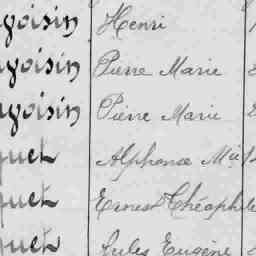 goisin Henri
goisin Pierre Marie
goisin Pierre Marie
quet Alphonse Mie
quet Ernest Théophile
quet Jules Eugène